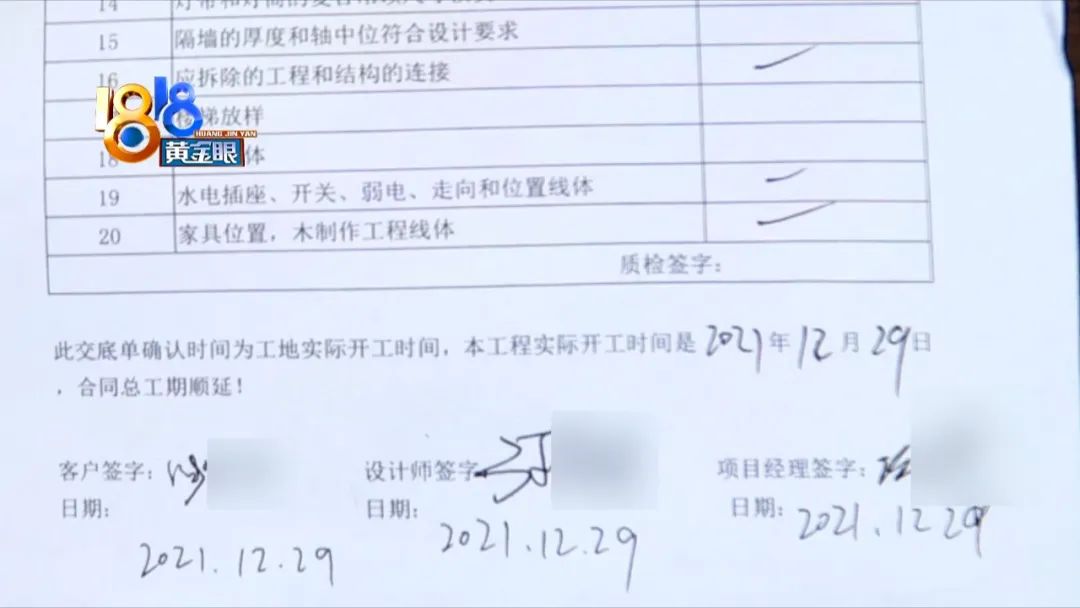 14
15 隔墙的厚度和轴中位符合设计要求
16 应拆除的工程和结构的连接
1818
HUANG JIN YAN
黄金眼
楼梯放样
18 体
19 水电插座、开关、弱电、走向和位置线体
20 家具位置，木制作工程线体
质检签字：
此交底单确认时间为工地实际开工时间，本工程实际开工时间是2021年12月29日
，合同总工期顺延！
客户签字： 设计师签字 项目经理签字：
日期： 日期： 日期：
2021.12.29 2021.12.29 2021.12.29